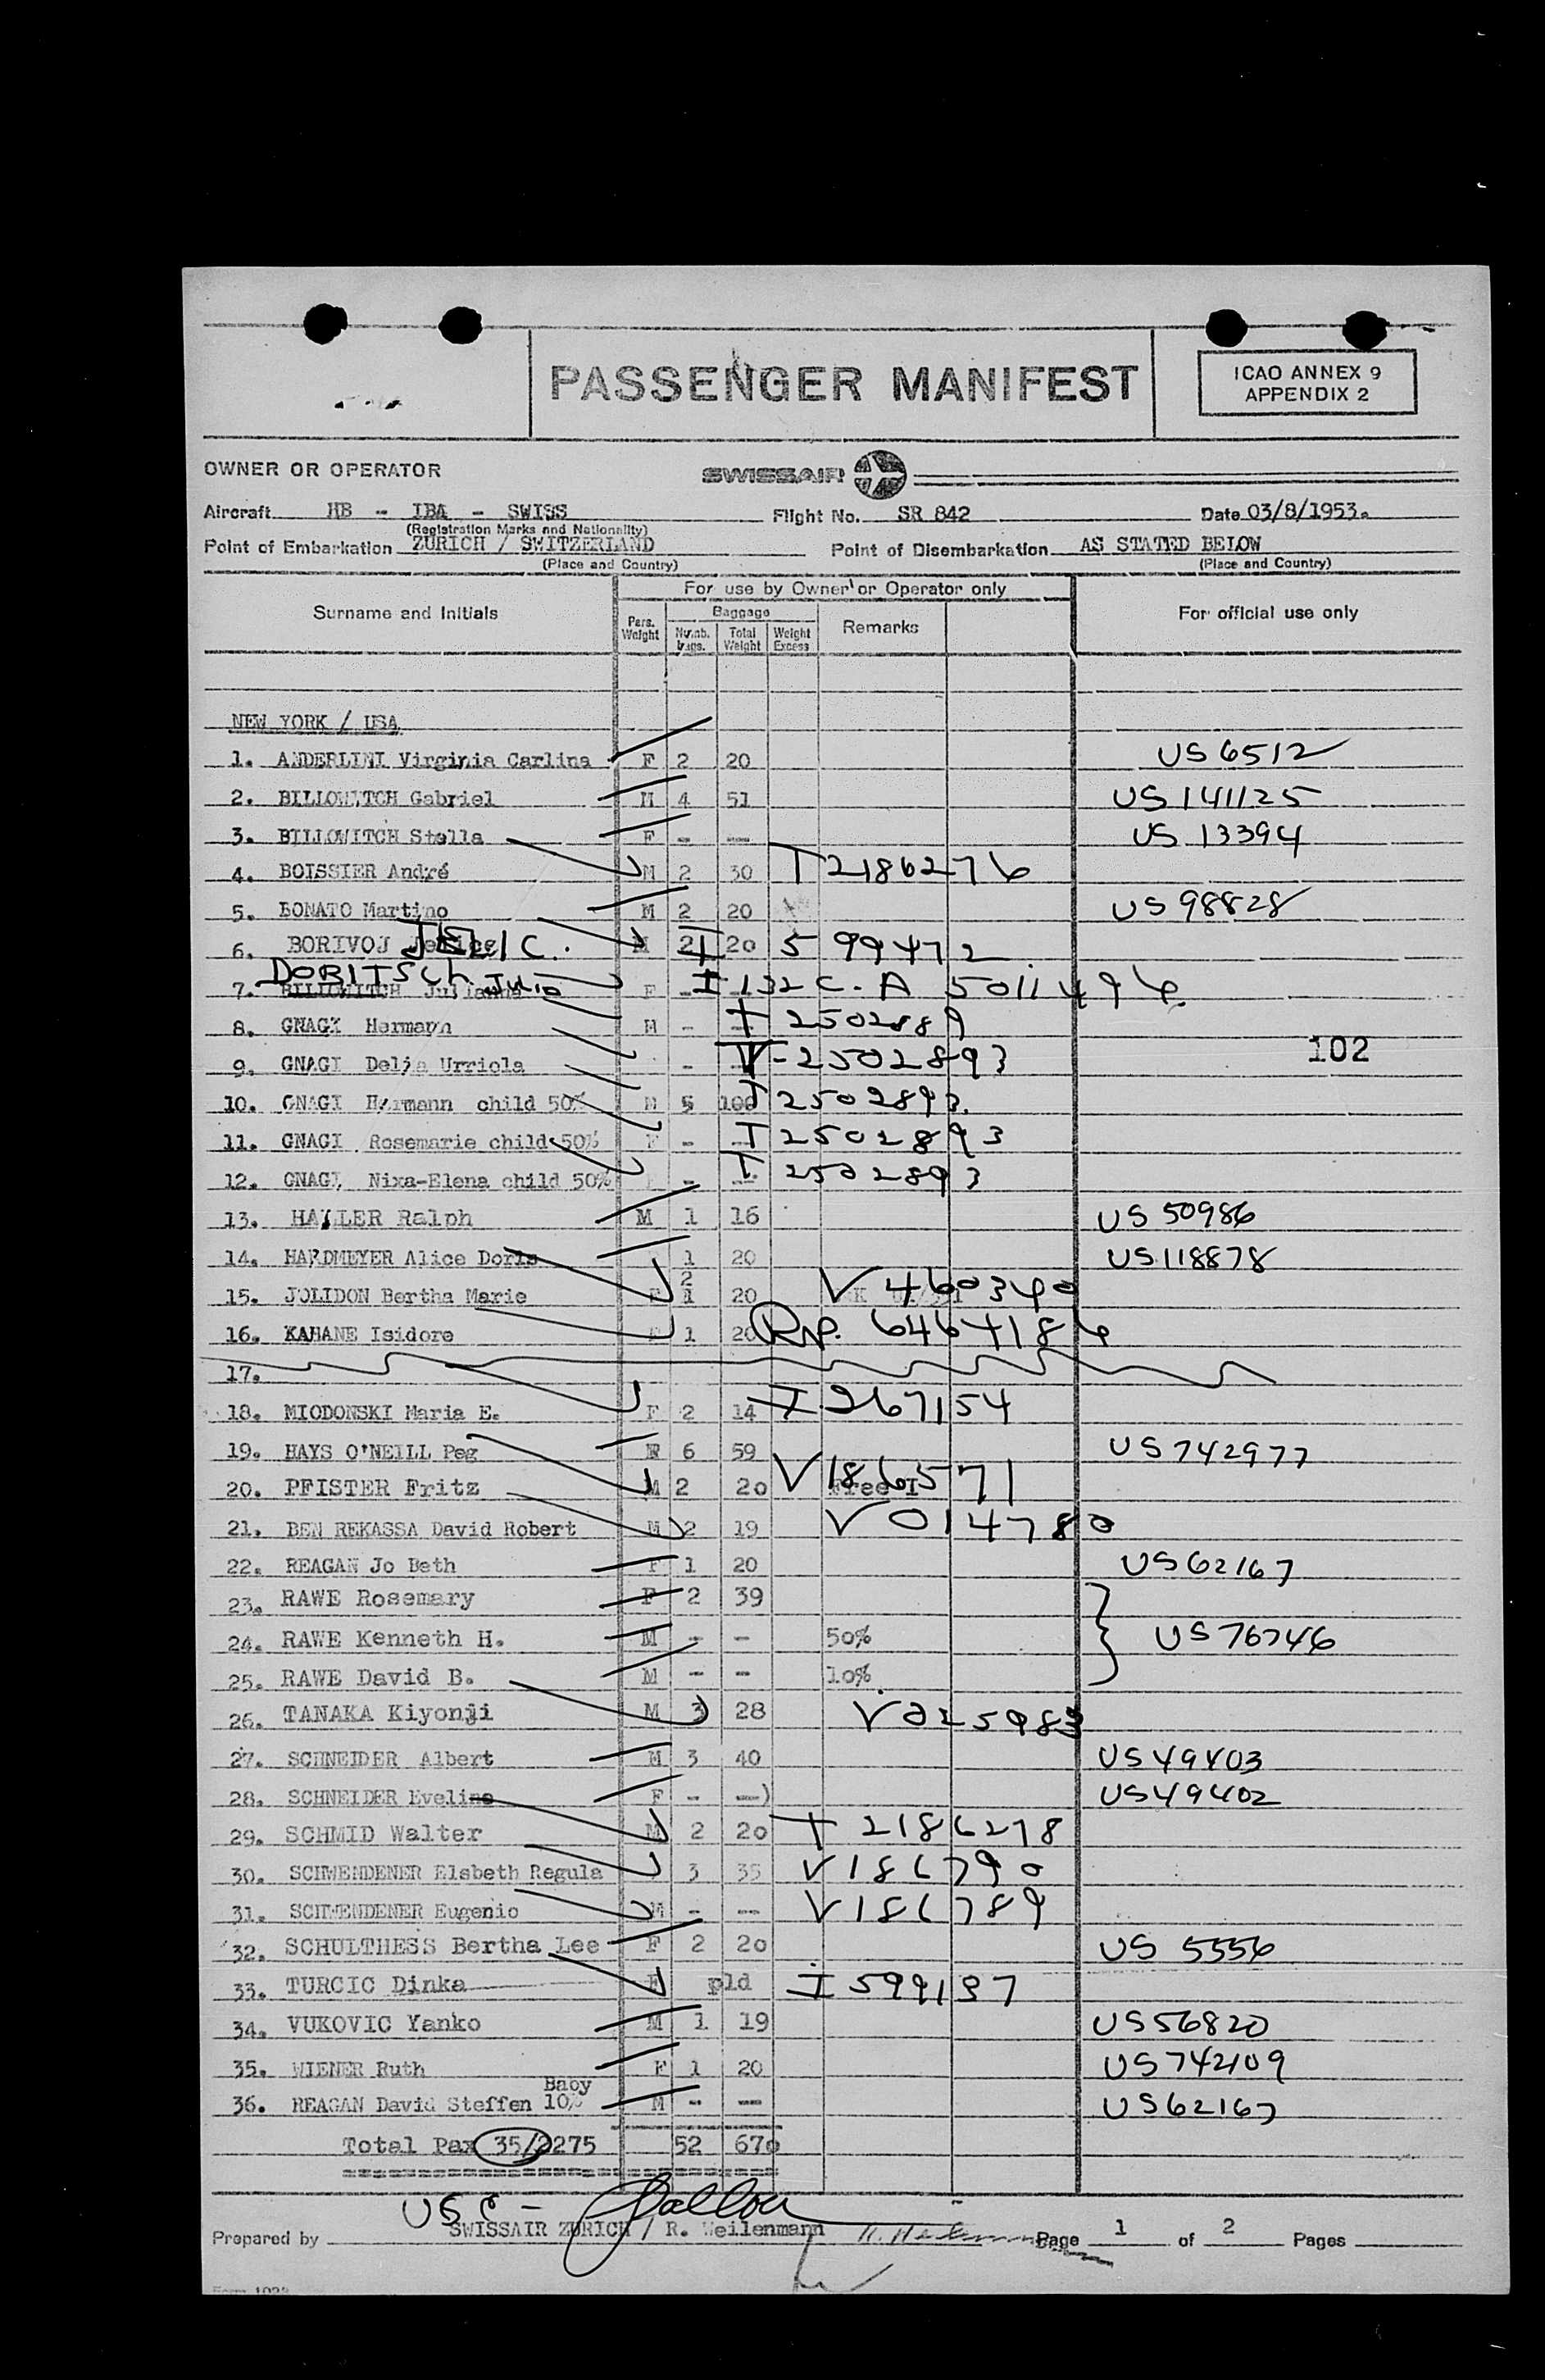 PASSENGER MANIFEST
ICAO ANNEX 9
APPENDIX 2
OWNER OR OPERATOR SWISSAIR
Aircraft HB - IBA - SWISS Flight No. SR 842 Date 03/8/1953.
(Registration Marks and Nationality)
Point of Embarkation ZURICH / SWITZERLAND Point of Disembarkation AS STATED BELOW
(Place and Country) (Place and Country)
For use by Owner or Operator only
Surname and Initials Baggage For official use only
Pers. Weight Numb. bags. Total Weight Weight Excess Remarks
NEW YORK / USA
1. ANDERLINI Virginia Carlina F 2 20 US 6512
2. BILLOWITCH Gabriel M 4 51 US 141125
3. BILLOWITCH Stella F - -- US 13394
4. BOISSIER André M 2 30 T 2186276
5. BONATO Martino M 2 20 US 98828
6. BORIVOJ JELIC. M 2 20 I 599472
DORITSCh Julia
7. BILLOWITCH Julianna F - I 132 C. A 5011496
8. GNAGI Hermann M - T 2502889
9. GNAGI Delja Urriola - T-2502893
102
10. GNAGI Hermann child 50% M 5 100 T 2502893.
11. GNAGI Rosemarie child 50% F - T 2502893
12. GNAGI, Nixa-Elena child 50% - T 2502893
13. HALLER Ralph M 1 16 US 50986
14. HARDMEYER Alice Doris 1 20 US 118878
15. JOLIDON Bertha Marie F 2 1 20 V 460340
16. KAHANE Isidore 1 20 R.P. 6464186
17.
18. MIODONSKI Maria E. F 2 14 I 267154
19. HAYS O'NEILL Peg F 6 59 US 742977
20. PFISTER Fritz M 2 20 Free I V 186571
21. BEN REKASSA David Robert M 2 19 V 014780
22. REAGAN Jo Beth F 1 20 US 62167
23. RAWE Rosemary F 2 39
24. RAWE Kenneth H. M - - 50% US 76746
25. RAWE David B. M - - 10%
26. TANAKA Kiyonji M 3 28 V 025983
27. SCHNEIDER Albert M 3 40 US 49403
28. SCHNEIDER Eveline F - --) US 49402
29. SCHMID Walter M 2 20 T 2186278
30. SCHWENDENER Elsbeth Regula 3 35 V 186790
31. SCHWENDENER Eugenio M - -- V 186789
32. SCHULTHESS Bertha Lee F 2 20 US 5556
33. TURCIC Dinka F pld I 599137
34. VUKOVIC Yanko M 1 19 US 56820
35. WIENER Ruth F 1 20 US 742109
36. REAGAN David Steffen Baby 10% M - -- US 62167
Total Pax 35/2275 52 670
USC -
Prepared by SWISSAIR ZURICH / R. Weilenmann Page 1 of 2 Pages